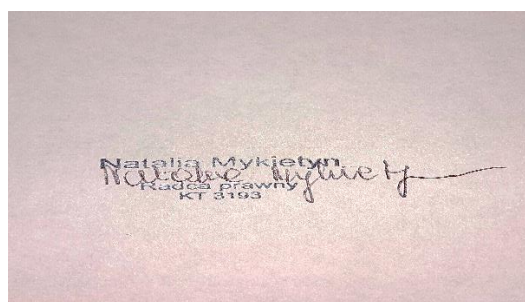 Natalia Mykietyn
Natalia Mykiety
Radca prawny
KT 3193